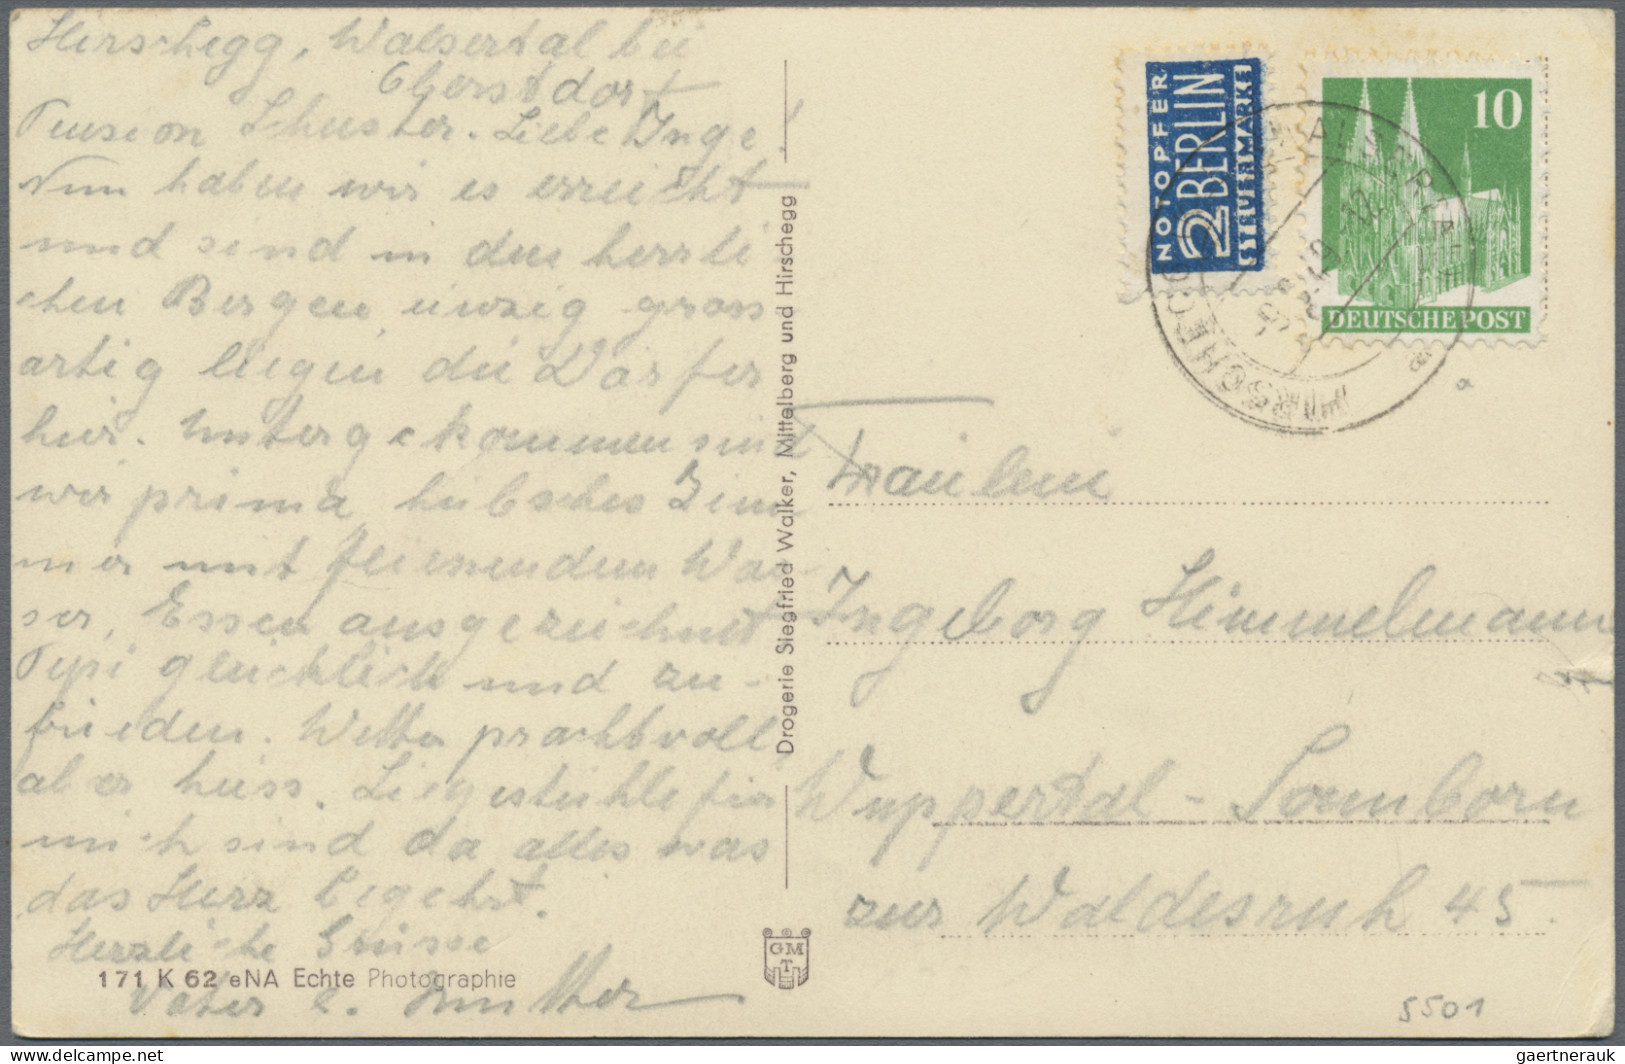 Hirschegg, Walsertal bei
Oberstdorf
Pension Schuster. Liebe Inge!
Nun haben wir es erreicht
und sind in den herrli
chen Bergen, einzig gross
artig liegen die Dörfer
hier. Untergekommen sind
wir prima, hübsches Zim
mer mit fliessendem Was
ser, Essen ausgezeichnet
Pipi glücklich und zu-
frieden. Wetter prachtvoll
aber heiss. Liegestühle für
mich sind da alles was
das Herz begehrt.
Herzliche Grüsse
Vater u. Mutter
171 K 62 eNA Echte Photographie
Drogerie Siegfried Walker, Mittelberg und Hirschegg
GMT
NOTOPFER
2 BERLIN
STEUERMARKE
10
DEUTSCHE POST
HIRSCHEGG
Fräulein
Ingeborg Himmelmann
Wuppertal-Sonnborn
zur Waldesruh 45.
5501
gaertnerauk